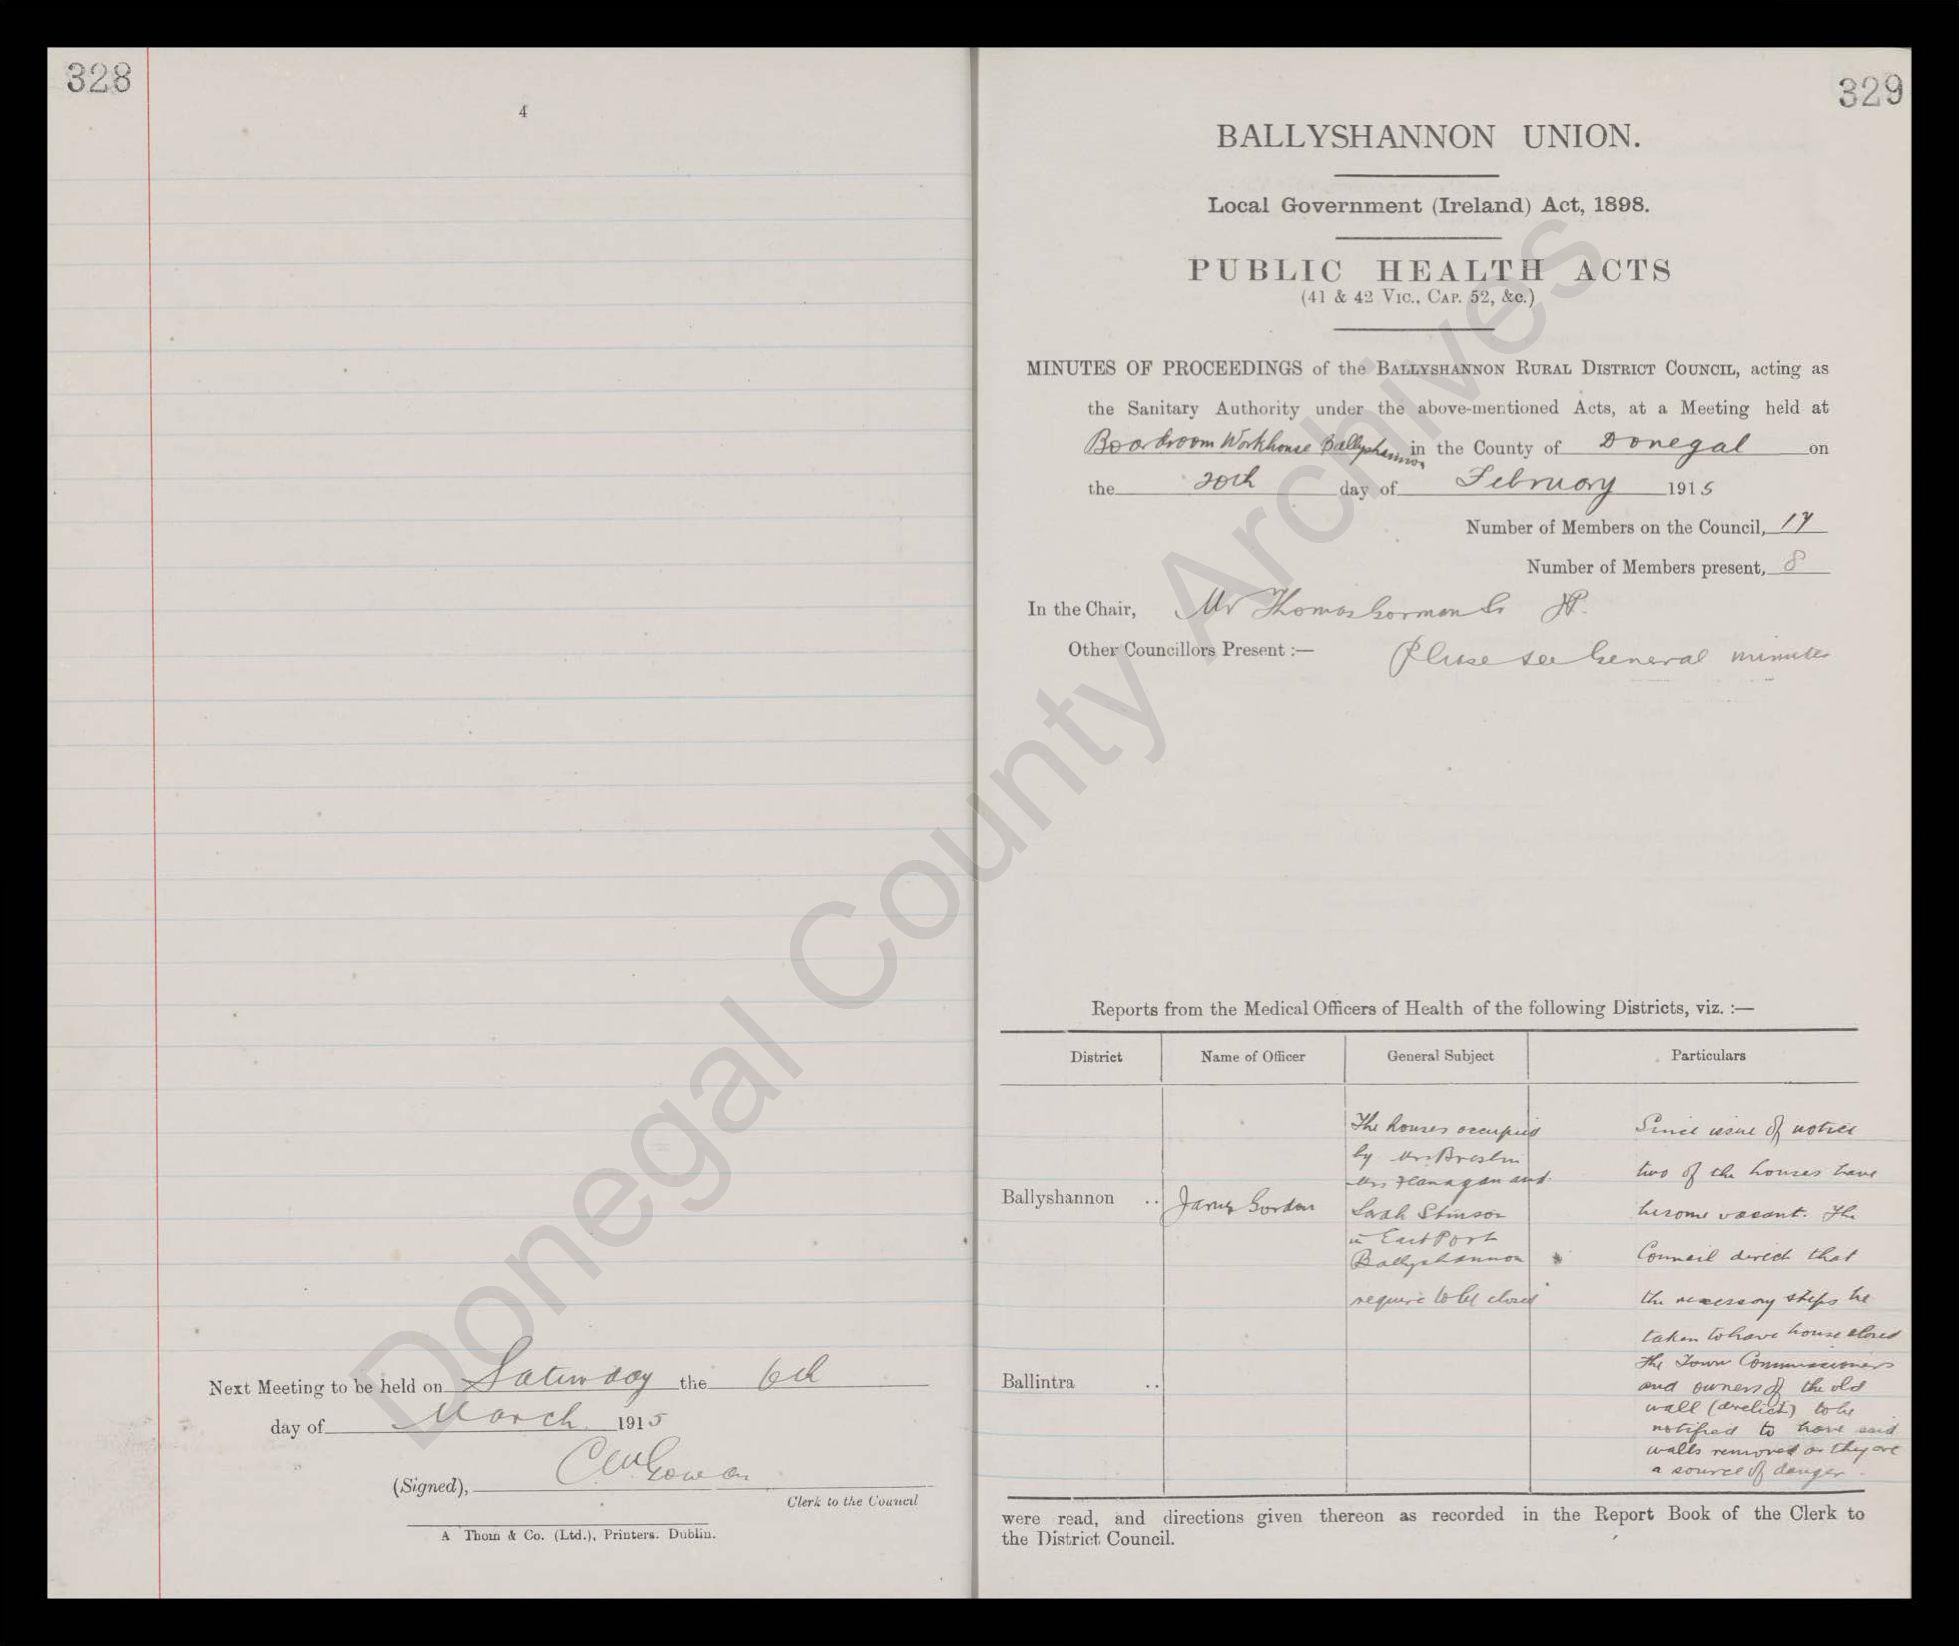 328
4
Next Meeting to be held on Saturday the 6th
day of March 1915
(Signed), C McGowan
Clerk to the Council
A Thom & Co. (Ltd.), Printers. Dublin.
329
BALLYSHANNON UNION.
Local Government (Ireland) Act, 1898.
PUBLIC HEALTH ACTS
(41 & 42 VIC., CAP. 52, &c.)
MINUTES OF PROCEEDINGS of the BALLYSHANNON RURAL DISTRICT COUNCIL, acting as
the Sanitary Authority under the above-mentioned Acts, at a Meeting held at
Boardroom Workhouse Ballyshannon in the County of Donegal on
the 20th day of February 1915
Number of Members on the Council, 17
Number of Members present, 8
In the Chair, Mr Thomas Gorman Sr JP.
Other Councillors Present :— Please see General minutes
Reports from the Medical Officers of Health of the following Districts, viz. :—
District Name of Officer General Subject Particulars
Ballyshannon .. James Gordon
The houses occupied
by Mrs Breslin
Mrs Flanagan and
Sarah Stinson
in East Port
Ballyshannon
require to be closed
Since issue of notice
two of the houses have
become vacant. The
Council direct that
the necessary steps be
taken to have house closed
The Town Commissioners
and owners of the old
wall (derelict) to be
notified to have said
walls removed as they are
a source of danger.
Ballintra ..
were read, and directions given thereon as recorded in the Report Book of the Clerk to
the District Council.
Donegal County Archives